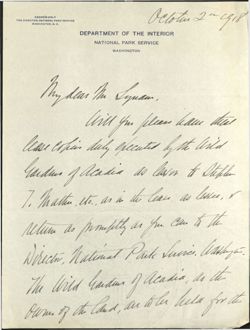 ADDRESS ONLY
THE DIRECTOR, NATIONAL PARK SERVICE
WASHINGTON, D. C.
October 2nd 1918
DEPARTMENT OF THE INTERIOR
NATIONAL PARK SERVICE
WASHINGTON
My dear Mr. Lynam.
Will you please have these
lease copies duly executed by the Wild
Gardens of Acadia as lessor to Stephen
T. Mather, etc. as in the lease, as lessee, &
return as promptly as you can to the
Director, National Park Service, Washington.
The Wild Gardens of Acadia, as the
owners of the land, are to be held for the